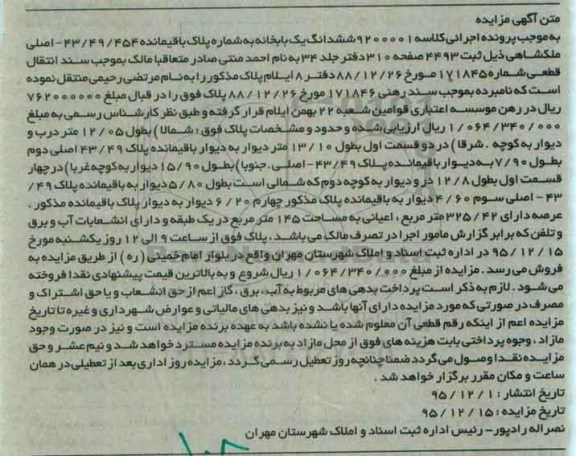 متن آگهی مزایده
به موجب پرونده اجرائی کلاسه ۹۲۰۰۰۰۱ ششدانگ یک بابخانه به شماره پلاک باقیمانده ۴۳/۴۹/۴۵۴ - اصلی
ملکشاهی ذیل ثبت ۴۴۹۳ صفحه ۳۱۰ دفتر جلد ۳۴ به نام احمد منتی صادر متعاقبا مالک بموجب سند انتقال
قطعی شماره ۱۷۱۸۴۵ مورخ ۸۸/۱۲/۲۶ دفتر ۸ ایلام پلاک مذکور را به نام مرتضی رحیمی منتقل نموده
است که نامبرده بموجب سند رهنی ۱۷۱۸۴۶ مورخ ۸۸/۱۲/۲۶ پلاک فوق را در قبال مبلغ ۷۶۲۰۰۰۰۰۰
ریال در رهن موسسه اعتباری قوامین شعبه ۲۲ بهمن ایلام قرار گرفته و طبق نظر کارشناس رسمی به مبلغ
۱/۰۶۴/۳۴۰/۰۰۰ ریال ارزیابی شده و حدود و مشخصات پلاک فوق : شمالا) بطول ۱۲/۰۵ متر درب و
دیوار به کوچه . شرقا) در دو قسمت اول بطول ۱۳/۱۰ متر دیوار به دیوار باقیمانده پلاک ۴۳/۴۹ اصلی دوم
بطول ۷/۹۰ به دیوار باقیمانده پلاک ۴۳/۴۹ - اصلی . جنوبا) بطول ۱۵/۹۰ دیوار به کوچه غربا) در چهار
قسمت اول بطول ۱۲/۸ در و دیوار به کوچه دوم که شمالی است بطول ۵/۸۰ دیوار به باقیمانده پلاک ۴۹/
۴۳ - اصلی سوم ۴/۶۰ دیوار به باقیمانده پلاک مذکور چهارم ۶/۲۰ دیوار به دیوار باقیمانده پلاک مذکور .
عرصه دارای ۳۲۵/۴۲ متر مربع ، اعیانی به مساحت ۱۴۵ متر مربع در یک طبقه و دارای انشعابات آب و برق
و تلفن که برابر گزارش مامور اجرا در تصرف مالک می باشد . پلاک فوق از ساعت ۹ الی ۱۲ روز یکشنبه مورخ
۹۵/۱۲/۱۵ در اداره ثبت اسناد و املاک شهرستان مهران واقع در بلوار امام خمینی (ره) از طریق مزایده به
فروش می رسد . مزایده از مبلغ ۱/۰۶۴/۳۴۰/۰۰۰ ریال شروع و به بالاترین قیمت پیشنهادی نقدا فروخته
می شود . لازم به ذکر است پرداخت بدهی های مربوط به آب ، برق ، گاز اعم از حق انشعاب و یا حق اشتراک و
مصرف در صورتی که مورد مزایده دارای آنها باشد و نیز بدهی های مالیاتی و عوارض شهرداری و غیره تا تاریخ
مزایده اعم از اینکه رقم قطعی آن معلوم شده یا نشده باشد به عهده برنده مزایده است و نیز در صورت وجود
مازاد ، وجوه پرداختی بابت هزینه های فوق از محل مازاد به برنده مزایده مسترد خواهد شد و نیم عشر و حق
مزایده نقدا وصول می گردد ضمنا چنانچه روز تعطیل رسمی گردد ، مزایده روز اداری بعد از تعطیلی در همان
ساعت و مکان مقرر برگزار خواهد شد .
تاریخ انتشار : ۹۵/۱۲/۱
تاریخ مزایده : ۹۵/۱۲/۱۵
نصراله رادپور - رئیس اداره ثبت اسناد و املاک شهرستان مهران
۱۰۸